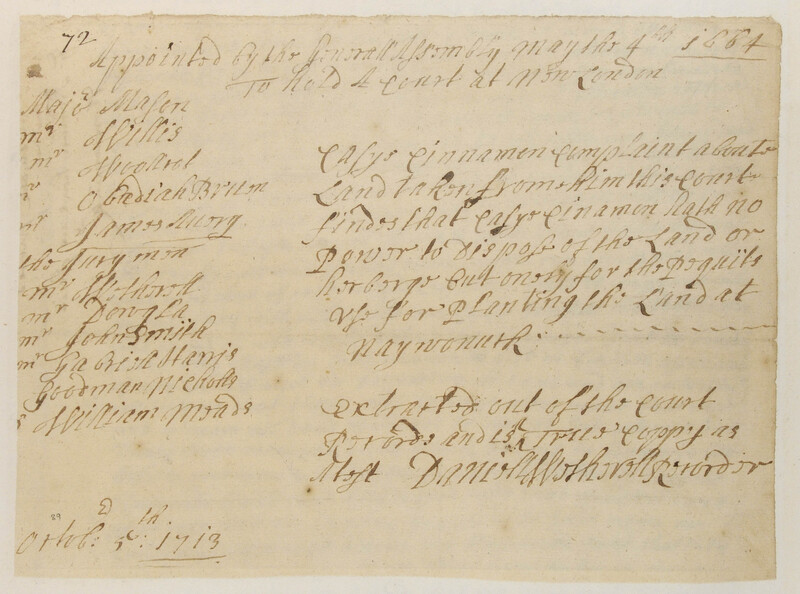 72
Appointed by the Generall Assembly may the 4th 1664
To hold A Court at New London
Majr Mason
mr Willis
mr Woollrd
mr Obadiah Bruen
mr James Avery
the Jury men
mr Wetherell
mr Dowgla
mr John Smith
mr Gabriell Harris
Goodman Nicholls
William Meads
Casye Cinnamen Complaint aboute
Land taken frome him this Court
findes that Casye Cinamen hath no
Power to Dispose of the Land or
herberge but onely for the Pequits
Use for Planting the Land at
Naywonuck
Extracted out of the Court
Records and is A True Coppy as
Atest Daniell Wetherell Recorder
Octob: 5th: 1713